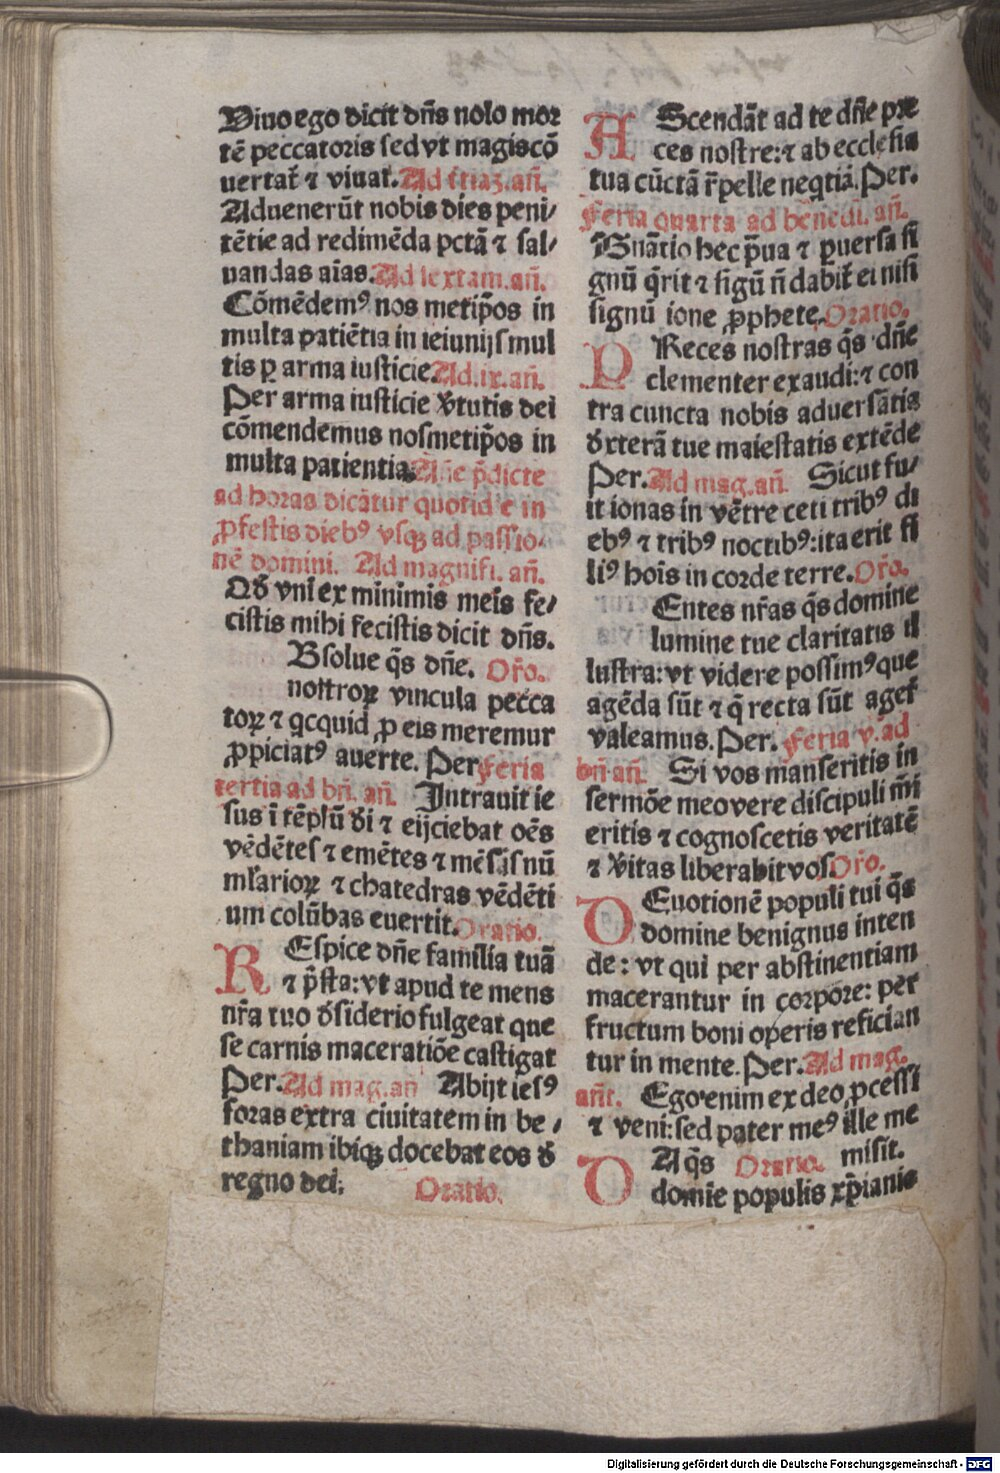 Viuo ego dicit dn̄s nolo mor
tē peccatoris sed vt magis cō
uertat᷑ ⁊ viuat᷑. Ad t̄tiaꝫ. an̄.
Aduenerūt nobis dies peni/
tētie ad redimēda pctā ⁊ sal/
uandas aīas. Ad sextam. an̄.
Cōmēdemꝰ nos metip̄os in
multa patiētia in ieiunijs mul
tis ꝑ arma iusticie. Ad .ix. an̄.
Per arma iusticie v̄tutis dei
cōmendemus nosmetip̄os in
multa patientia. An̄e p̄dicte
ad horas dicātur quotidie in
ꝓfestis diebꝰ vsqꝫ ad passio-
nē domini. Ad magnifi. an̄.
Qd̄ vnī ex minimis meis fe/
cistis mihi fecistis dicit dn̄s.
Bsolue q̄s dn̄e. Or̄o.
nostroꝝ vincula pecca
toꝝ ⁊ qcquid ꝓ eis meremur
ꝓpiciatꝰ auerte. Per. Feria
tertia ad bn̄. an̄. Intrauit ie
sus ī tēplū dī ⁊ eijciebat oēs
vēdētes ⁊ emētes ⁊ mēsas nū
mlarioꝝ ⁊ chatedras vēdēti
um colūbas euertit. Oratio.
REspice dn̄e familia tuā
⁊ p̄sta: vt apud te mens
nr̄a tuo d̄siderio fulgeat que
se carnis maceratiōe castigat
Per. Ad mag. an̄ Abijt iesꝰ
foras extra ciuitatem in be/
thaniam ibiqꝫ docebat eos d̄
regno dei. Oratio.
AScendāt ad te dn̄e pre
ces nostre: ⁊ ab ecclesia
tua cūctā r̄pelle neqtiā. Per.
Feria quarta ad benedi. an̄.
Gnātio hec p̄ua ⁊ ꝑuersa si
gnū q̄rit ⁊ sigū n̄ dabit᷑ ei nisi
signū ione ꝓphete. Oratio.
PReces nostras q̄s dn̄e
clementer exaudi: ⁊ con
tra cuncta nobis aduersātia
d̄xterā tue maiestatis extēde
Per. Ad mag. an̄. Sicut fu/
it ionas in vētre ceti tribꝰ di
ebꝰ ⁊ tribꝰ noctibꝰ: ita erit fi
liꝰ hoīs in corde terre. Or̄o.
Entes nr̄as q̄s domine
lumine tue claritatis il
lustra: vt videre possimꝰ que
agēda sūt ⁊ q̄ recta sūt ager̄
valeamus. Per. Feria v. ad
bn̄ an̄. Si vos manseritis in
sermōe meo vere discipuli m̄i
eritis ⁊ cognoscetis veritatē
⁊ v̄itas liberabit vos. Or̄o.
DEuotionē populi tui q̄s
domine benignus inten
de: vt qui per abstinentiam
macerantur in corpore: per
fructum boni operis refician
tur in mente. Per. Ad mag.
an̄t. Ego enim ex deo ꝓcessi
⁊ veni: sed pater meꝰ ille me
DA q̄s Oratio. misit.
domīe populis xp̄ianis
Digitalisierung gefördert durch die Deutsche Forschungsgemeinschaft - DFG